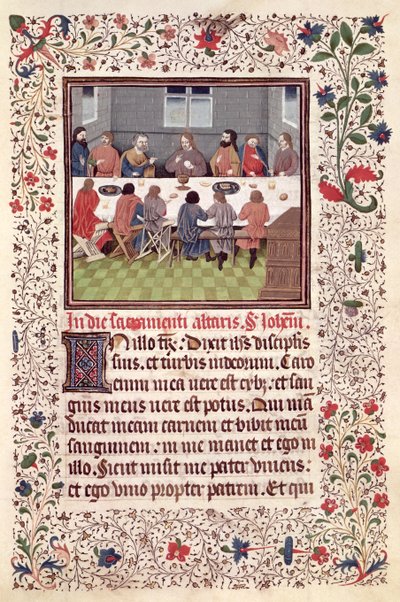 In die sacramenti altaris. S. Johem.
In illo tpr. Dixit ihs discipls
suis. et turbis iudeorum. Caro
enim mea vere est cyb9. et san
guis meus vere est potus. Qui man
ducat meam carnem et bibit meum
sanguinem. in me manet et ego in
illo. Sicut misit me pater vivens.
et ego vivo propter patrem. Et qui